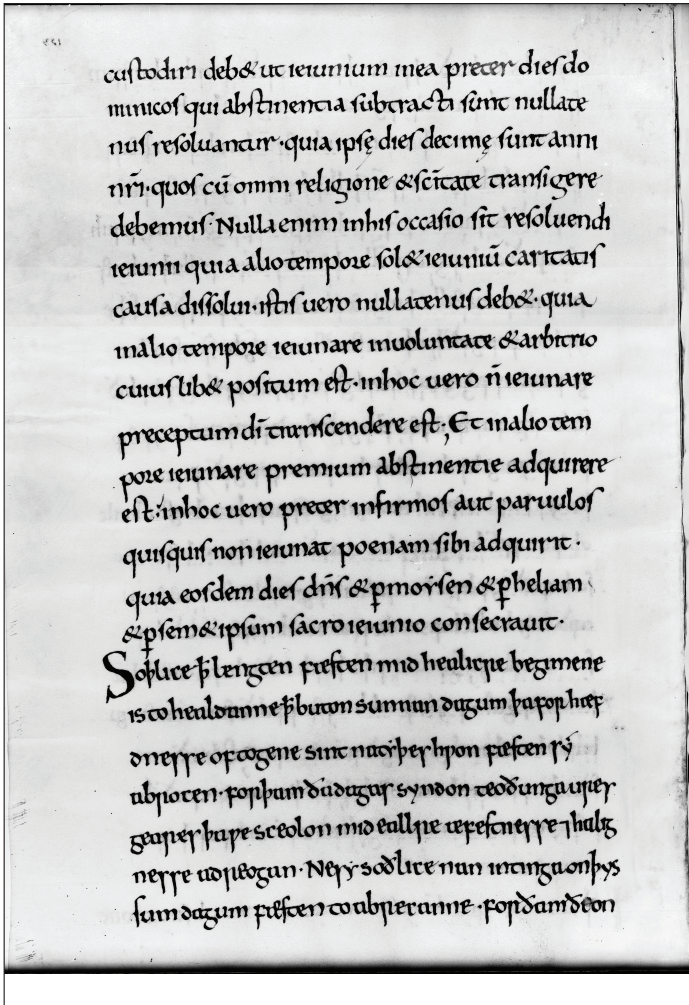 custodiri deb& ut ieiunium mea preter dies do
minicos qui abstinentia subtracti sunt nullate
nus resoluantur · quia ipsę dies decimę sunt anni
nr̄i · quos cū omni religione &sc̄itate transigere
debemus · Nulla enim inhis occasio sit resoluendi
ieiunii quia alio tempore sol& ieiuniū caritatis
causa dissolui · istis uero nullatenus deb& · quia
inalio tempore ieiunare inuoluntate &arbitrio
cuiuslib& positum est · inhoc uero n̄ ieiunare
preceptum dī transcendere est ; Et inalio tem
pore ieiunare premium abstinentie adquirere
est · inhoc uero preter infirmos aut paruulos
quisquis non ieiunat poenam sibi adquirit ·
quia eosdem dies dn̄s &p̱ moẏsen &p̱ heliam
&p̱ sem&ipsum sacro ieiunio consecrauit ·
Soþlice ꝥ lengten fæsten mid healicre begimene
is to healdanne ꝥ buton sunnan dagum þa for hæf
dnesse oftogene sint nateþeshwon fæsten sẏ
abrocen · forþam ða dagas syndon teoðunga ures
geares þa we sceolon mid eallre æfestnesse ⁊ halig
nesse adreogan · Ne sẏ soðlice nan intinga on þys
sum dagum fæsten to abrecanne · forðam ðe on